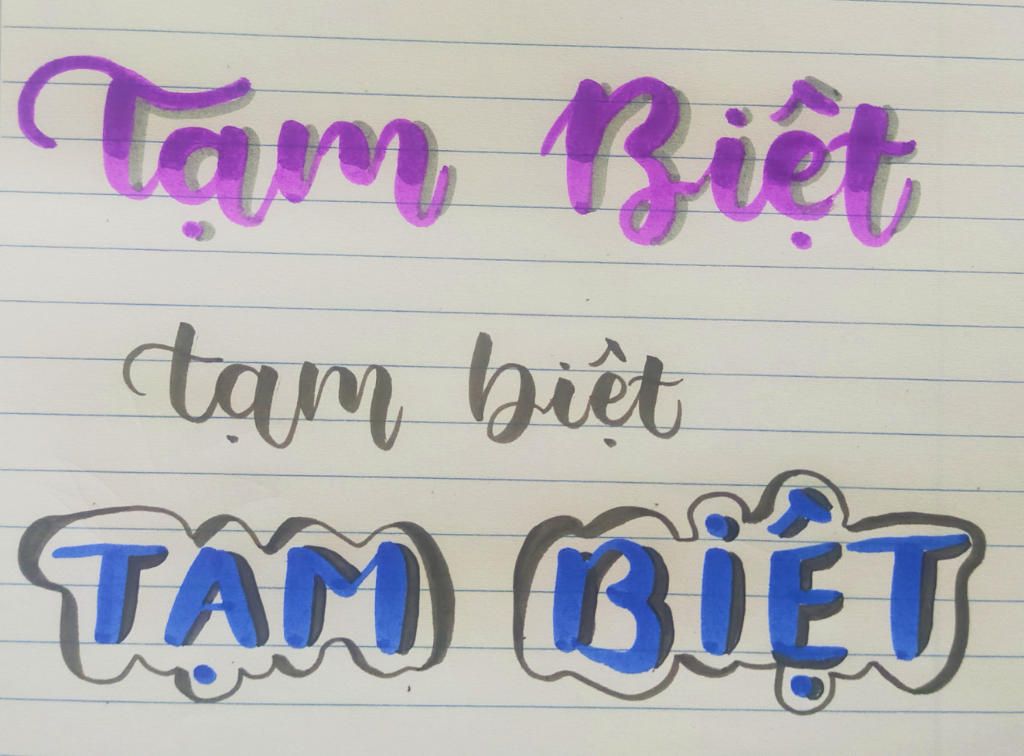 Tạm Biệt
tạm biệt
TẠM BIỆT